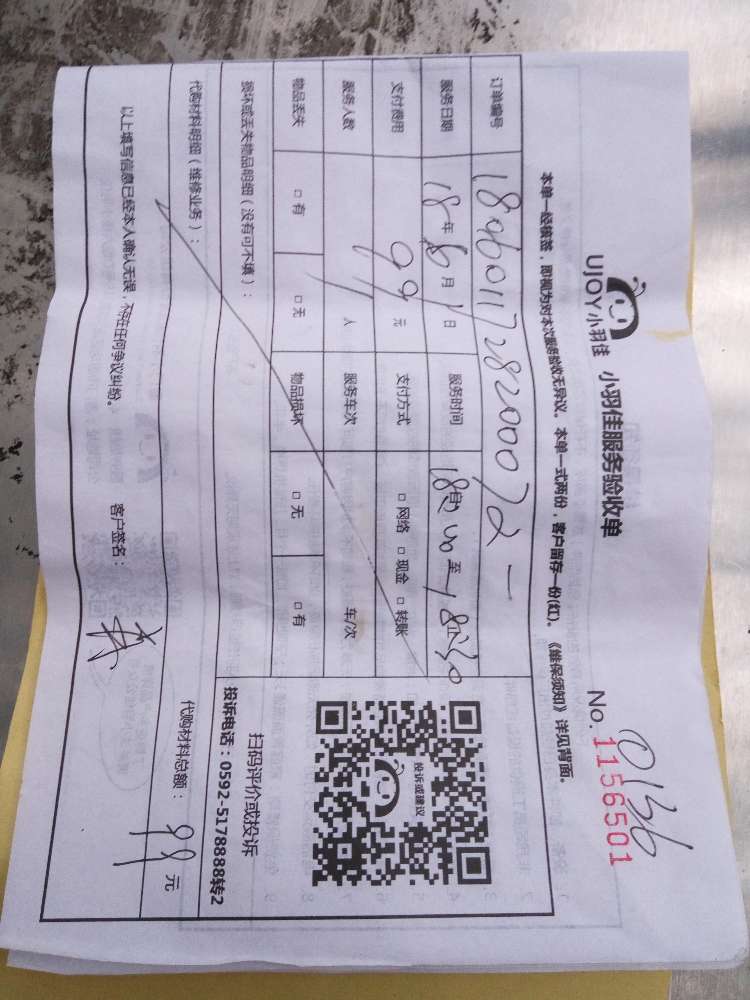 UJOY小羽佳 小羽佳服务验收单
0136
No. 1156501
本单一经核签，即视为对本次服务验收无异议。 本单一式两份，客户留存一份(红)。《维保须知》详见背面。
订单编号
服务日期 18年6月1日 服务时间 至
支付费用 99元 支付方式 □ 网络 □ 现金 □ 转账
服务人数 人 服务车次 车/次
物品丢失 □ 有 □ 无 物品损坏 □ 无 □ 有
损坏或丢失物品明细（没有可不填）：
投诉或建议
扫码评价或投诉
投诉电话：0592-5178888转2
代购材料明细（维修业务）：
代购材料总额： 99元
以上填写信息已经本人确认无误，不存在任何争议纠纷。 客户签名：